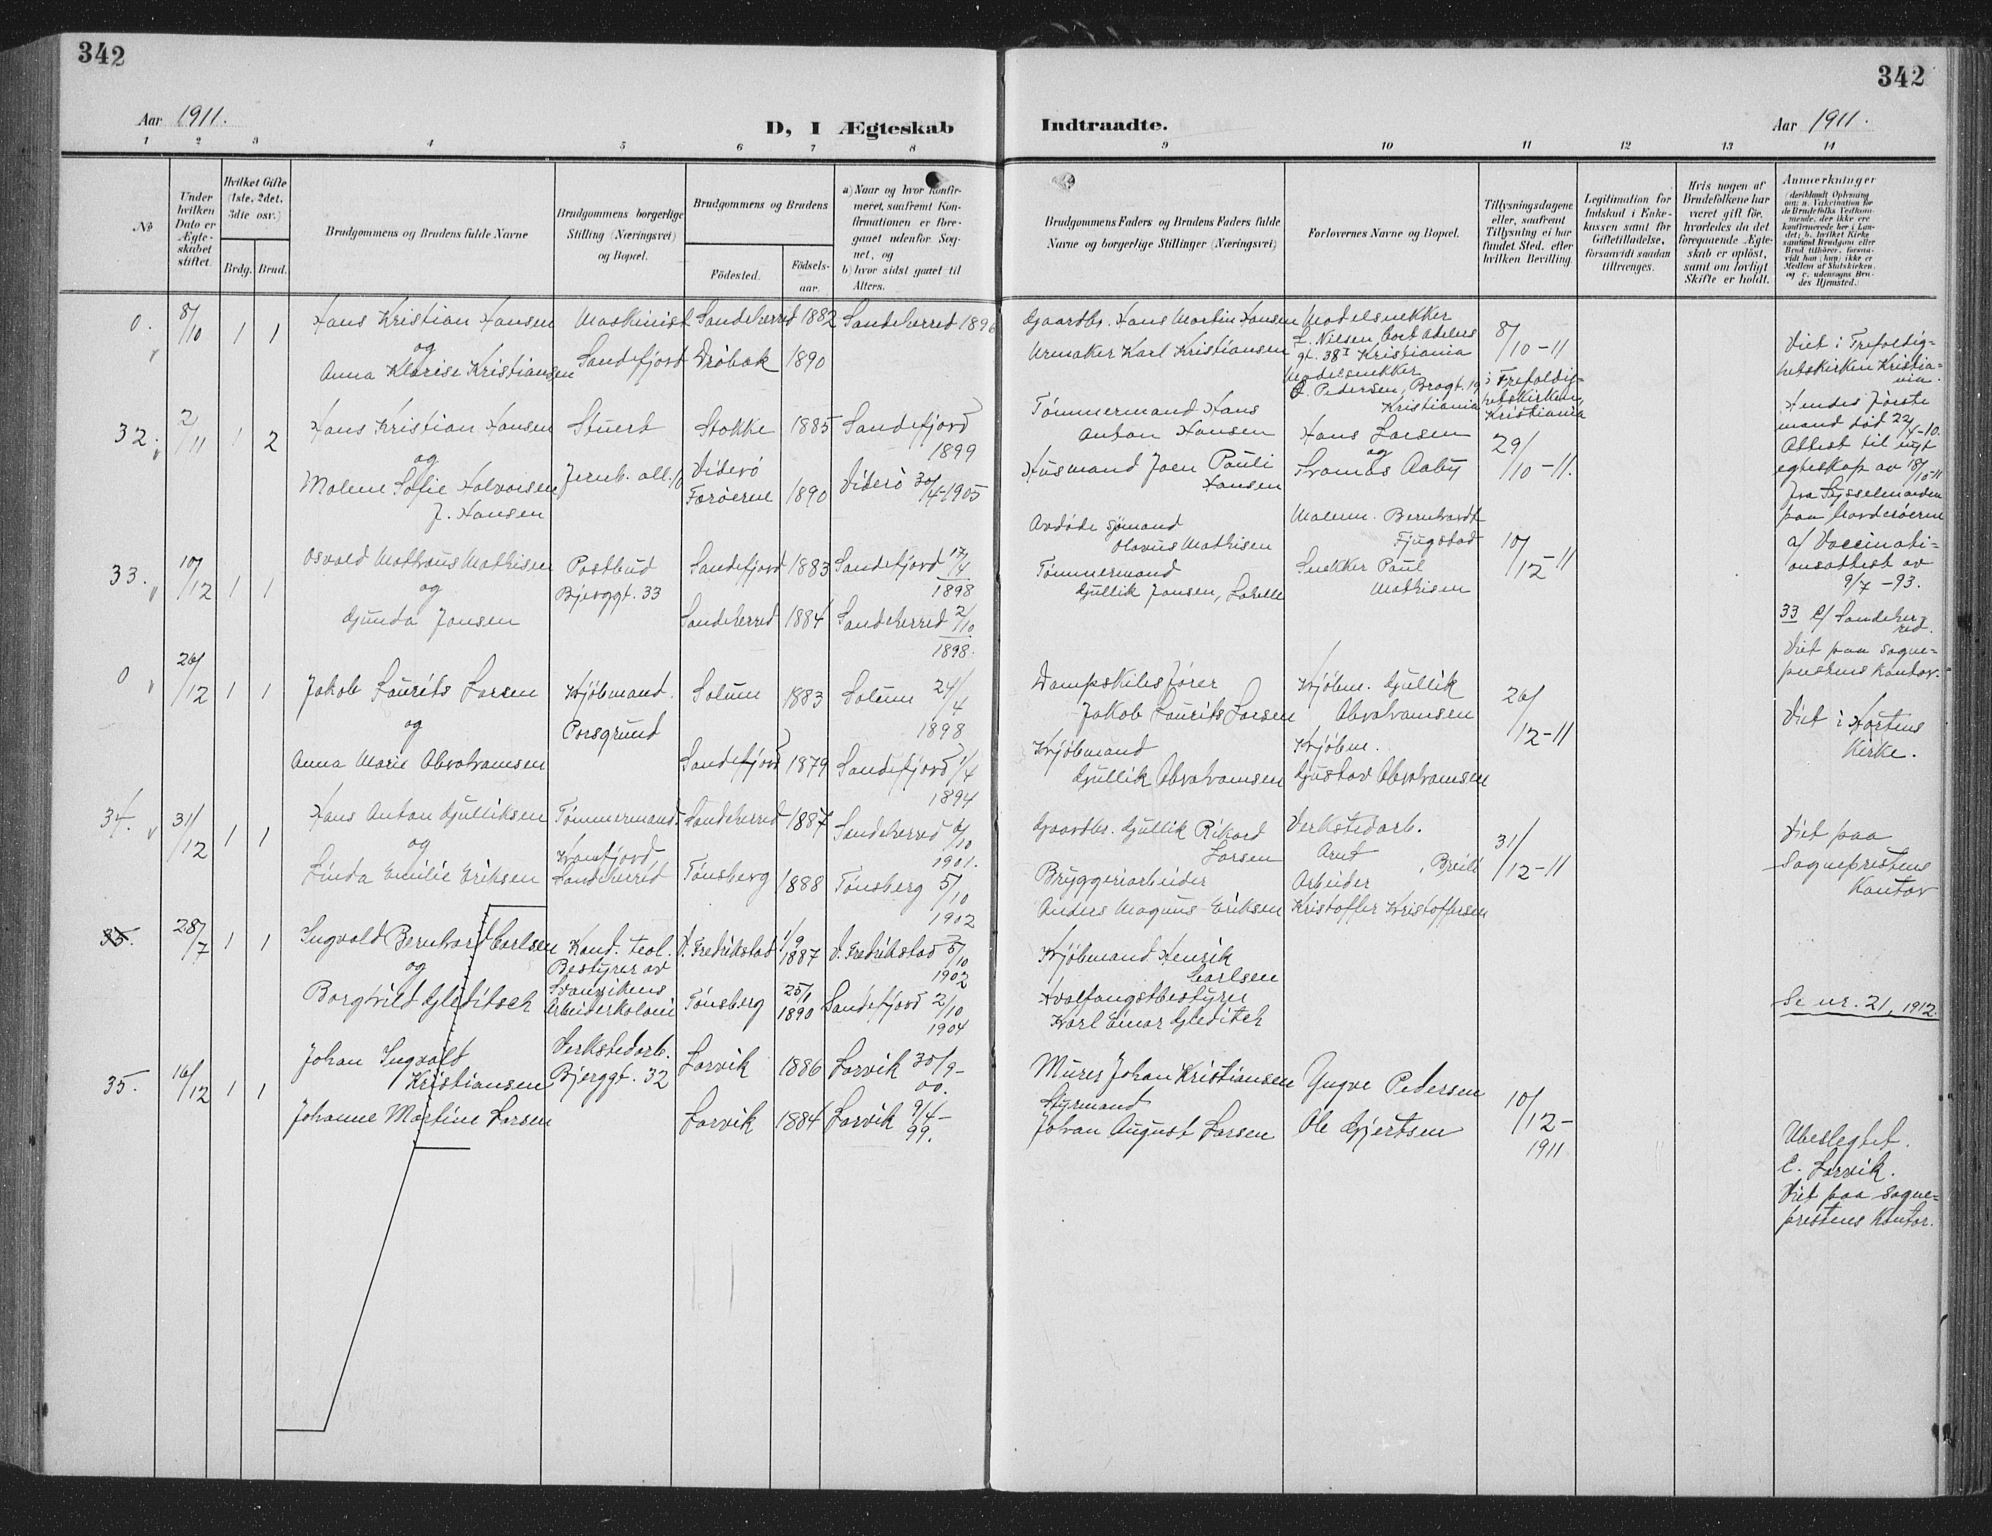 342
342
Aar 1911.
D, I Ægteskab
Indtraadte.
Aar 1911.
1 2 3 4 5 6 7 8
9 10 11 12 13 14
No
Under hvilken Dato er Ægteskabet stiftet.
Hvilket Gifte (1ste, 2det, 3die osv.)
Brdg. Brud.
Brudgommens og Brudens fulde Navne
Brudgommens borgerlige Stilling (Næringsvei) og Bopæl.
Brudgommens og Brudens
Fødested.
Fødselsaar.
a) Naar og hvor konfirmeret, saafremt Konfirmationen er foregaaet udenfor Sognet, og
b) hvor sidst gaaet til Alters.
Brudgommens Faders og Brudens Faders fulde Navne og borgerlige Stillinger (Næringsvei)
Forlovernes Navne og Bopæl.
Tillysningsdagene eller, saafremt Tillysning ei har fundet Sted, efter hvilken Bevilling.
Legitimation for Indskud i Enkekassen samt for Giftetilladelse, forsaavidt saadan tiltrænges.
Hvis nogen af Brudefolkene har været gift før, hvorledes da det foregaaende Ægteskab er opløst, samt om lovligt Skifte er holdt.
Anmerkninger
0. 8/10 1 1
Hans Kristian Hansen
og
Anna Klarise Kristiansen
Maskinist
Sandefjord
Sandeherred 1882 Sandeherred 1896
Drøbak 1890
Gaardbr. Hans Martin Hansen
Urmaker Karl Kristiansen
Modelsnekker
L. Nielsen, Cort Adelers
gt. 38 I Kristiania
Modelsnekker
Pedersen, Bragt. 19
Kristiania
8/10-11
i Trefoldighetskirken,
Kristiania
Viet i Trefoldighetskirken Kristiania.
32. 2/11 1 2
Hans Kristian Hansen
og
Malene Sofie Halvorsen
f. Hansen
Stuert
Jernb. all. 10
Stokke 1885 Sandefjord
1899
Viderø
Færøerne 1890 Viderø 30/4-1905
Tømmermand Hans
Anton Hansen
Husmand Joen Pauli
Hansen
Hans Larsen
og
Tomas Aaby
29/10-11.
Hendes første
mand død 22/4-10.
Attest til nyt
egteskap av 18/10-11
fra Sysselmanden
paa Norderøerne
33. 10/12 1 1
Osvald Mathæus Mathisen
og
Gunda Jansen
Postbud
Bjerggt. 33
Sandefjord 1883 Sandefjord 17/4
1898
Sandeherred 1884 Sandeherred 2/10
1898.
Avdøde sømand
Olavus Mathisen
Tømmermand
Gullik Jansen,
Malerm. Bernhardt
Fjugstad
Snekker Paul
Mathisen
10/12-11
a/ Vaccinationsattest av
9/7-93.
33 c/ Sandeherred.
Viet paa sogneprestens kontor.
0 26/12 1 1
Jakob Laurits Larsen
og
Anna Marie Abrahamsen
Kjøbmand.
Porsgrund
Solum 1883 Solum 24/4
1898
Sandefjord 1879 Sandefjord 1/4
1894
Dampskibsfører
Jakob Laurits Larsen
Kjøbmand
Gullik Abrahamsen
Kjøbm. Gullik
Abrahamsen
Kjøbm.
Gustav Abrahamsen
26/12-11
Viet i Hortens
Kirke.
34. 31/12 1 1
Hans Anton Gulliksen
og
Linda Emilie Eriksen
Tømmermand.
Sandeherred
Sandeherred 1887 Sandeherred 6/10
1901.
Tønsberg 1888 Tønsberg 5/10
1902
Gaardbr. Gullik Rikard
Larsen
Bryggeriarbeider
Anders Magnus Eriksen
Verkstedarb.
Arnt
Arbeider
Kristoffer Kristoffersen
31/12-11
Viet paa
Sogneprestens
Kontor
35. 28/7 1 1
Ingvald Bernhard Carlsen
og
Borghild Gleditsch
Kand. teol.
Bestyrer av
Svanvikens
Arbeiderkoloni
V. Fredrikstad 1/9 1887 V. Fredrikstad 5/10
1902
Tønsberg 25/1 1890 Sandefjord 2/10
1904
Kjøbmand Henrik
Carlsen
Hvalfangstbestyrer
Karl Einar Gleditsch
Se nr. 21, 1912.
35. 16/12 1 1
Johan Ingvalt
Kristiansen
Johanne Martine Larsen
Verkstedarb.
Bjerggt. 32
Larvik 1886 Larvik 30/9-
00.
Larvik 1884 Larvik 9/4-
99.
Murer Johan Kristiansen
Styrmand
Johan August Larsen
Yngve Pedersen
Ole Gjertsen
10/12-
1911
Ubeslegtet.
C. Larvik.
Viet paa sogneprestens kontor.